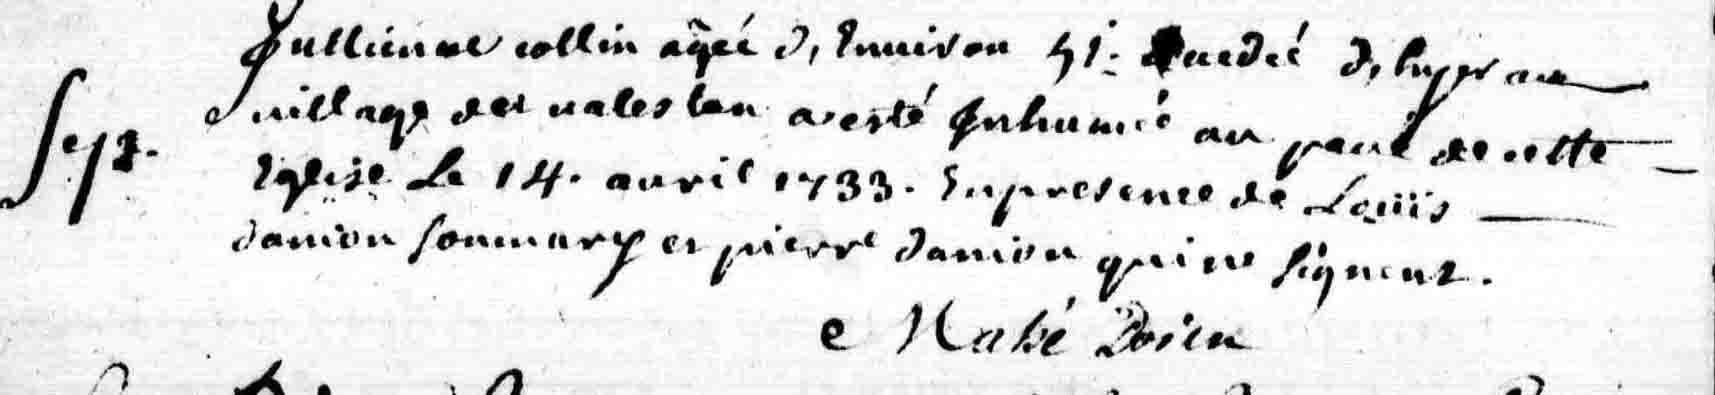 Jullienne collin agéé d, Environ 51. decedéé d, hyer au
village des
Sep. a esté Inhumeé au pavé de cette
Eglise Le 14. avril 1733. En presence de Louïs
danion son mary et pierre danion qui ne signent.
e Mahé Doien